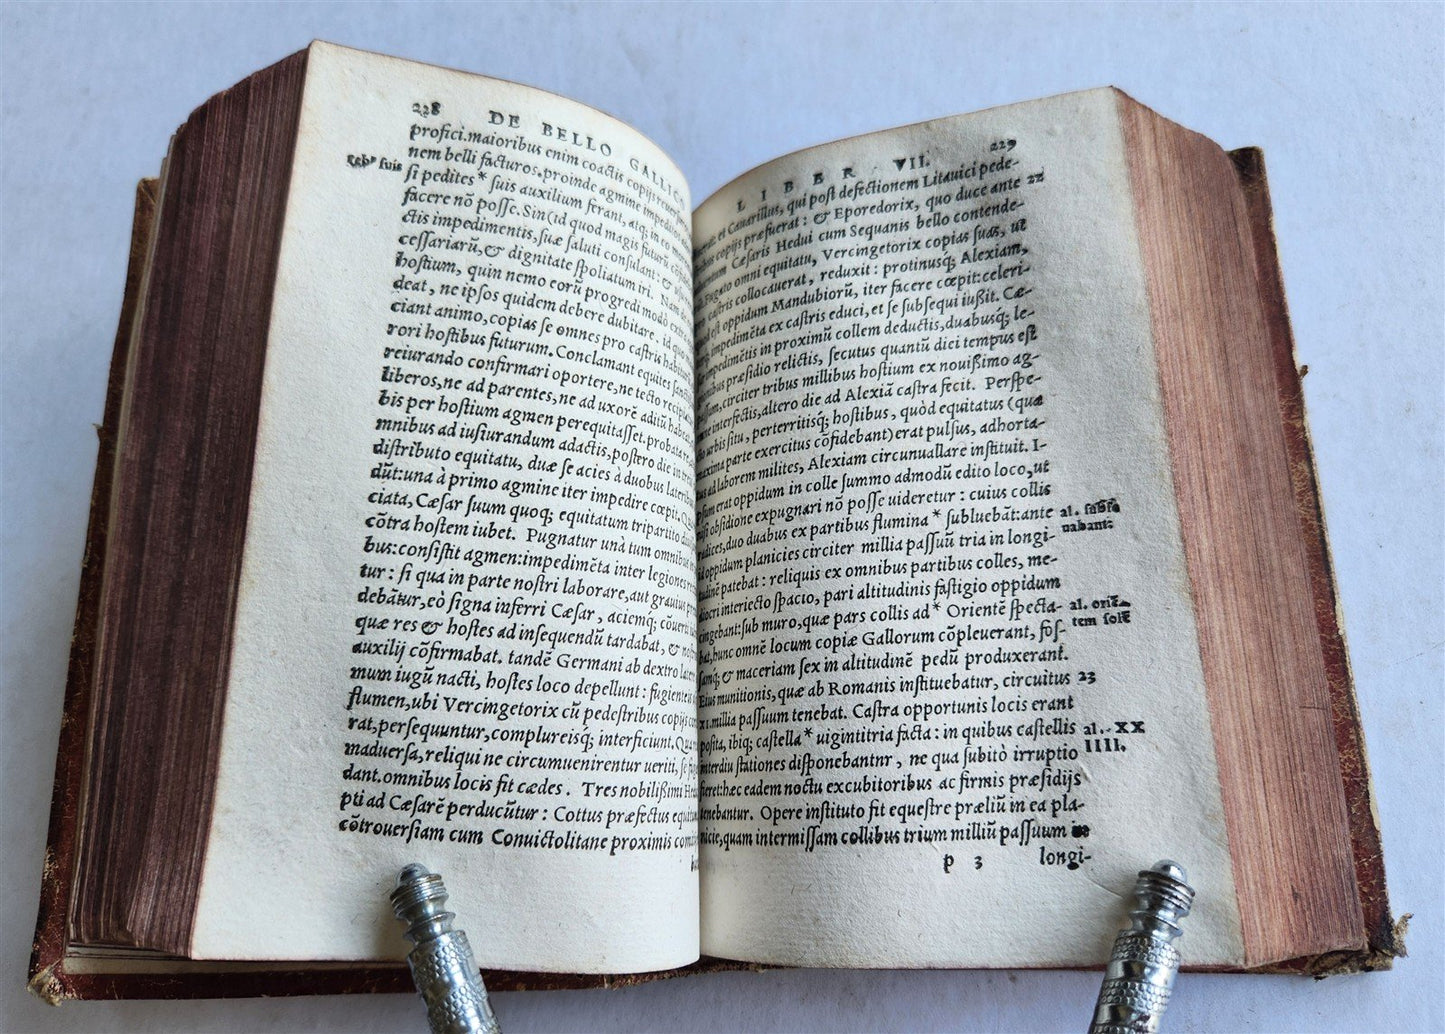 228 DE BELLO GALLICO
profici.maioribus enim coactis copijs reuersuros
nem belli facturos.proinde agmine impeditos
rebꝰ suis
si pedites* suis auxilium ferant, atq; in eo
facere nō posse. Sin(id quod magis futurū
ctis impedimentis, suæ saluti consulant: &
cessariarū, & dignitate spoliatum iri. Nam de
hostium, quin nemo eorū progredi modò extra
deat, ne ipsos quidem debere dubitare. id quo
ciant animo, copias se omnes pro castris
rori hostibus futurum. Conclamant equites
reiurando confirmari oportere, ne tecto
liberos, ne ad parentes, ne ad uxorē aditū
bis per hostium agmen perequitasset. probata re
mnibus ad iusiurandum adactis, postero die in
distributo equitatu, duæ se acies à duobus
dūt: una à primo agmine iter impedire cœpit.
ciata, Cæsar suum quoq; equitatum tripartito
cōtra hostem iubet. Pugnatur unà tum omnibus
bus: consistit agmen: impedimēta inter legiones
tur: si qua in parte nostri laborare, aut grauius
debātur, eò signa inferri Cæsar, aciemq;
quæ res & hostes ad insequendū tardabat, &
auxilij cōfirmabat. tandē Germani ab dextro
mum iugū nacti, hostes loco depellunt: fugientes
flumen, ubi Vercingetorix cū pedestribus copijs
rat, persequuntur, complureisq; interficiunt.
maduersa, reliqui ne circumuenirentur ueriti, se
dant. omnibus locis fit cædes. Tres nobilißimi
pti ad Cæsarē perducūtur: Cottus præfectus
cōtrouersiam cum Conuictolitane proximis
LIBER VII. 229
et Cauarillus, qui post defectionem Litauici pede-
copijs præfuerat: & Eporedorix, quo duce ante
22
Cæsaris Hedui cum Sequanis bello contende-
Fugato omni equitatu, Vercingetorix copias suas, ut
castris collocauerat, reduxit: protinusq; Alexiam,
est oppidum Mandubiorū, iter facere cœpit: celeri-
impedimēta ex castris educi, et se subsequi iußit. Cæ-
impedimētis in proximū collem deductis, duabusq; le-
præsidio relictis, secutus quantū diei tempus est
circiter tribus millibus hostium ex nouißimo ag-
interfectis, altero die ad Alexiā castra fecit. Perspe-
urbis situ, perterritisq; hostibus, quòd equitatus (qua
maxima parte exercitus cōfidebant) erat pulsus, adhorta-
ad laborem milites, Alexiam circunuallare instituit. I-
erat oppidum in colle summo admodū edito loco, ut
obsidione expugnari nō posse uideretur: cuius collis
radices, duo duabus ex partibus flumina* subluebāt: ante
al. subse
uabant:
oppidum planicies circiter millia passuū tria in longi-
tudinē patebat: reliquis ex omnibus partibus colles, me-
diocri interiecto spacio, pari altitudinis fastigio oppidum
cingebant: sub muro, quæ pars collis ad* Orientē specta-
al. oriē-
tem solē
bat, hunc omnē locum copiæ Gallorum cōpleuerant, fos-
samq; & maceriam sex in altitudinē pedū produxerant.
Eius munitionis, quæ ab Romanis instituebatur, circuitus
23
xi. millia passuum tenebat. Castra opportunis locis erant
posita, ibiq; castella* uigintitria facta: in quibus castellis
al. XX
IIII.
interdiu stationes disponebantnr, ne qua subitò irruptio
fieret: hæc eadem noctu excubitoribus ac firmis præsidijs
tenebantur. Opere instituto fit equestre præliū in ea pla-
nicie, quam intermissam collibus trium milliū passuum in
p 3 longi-